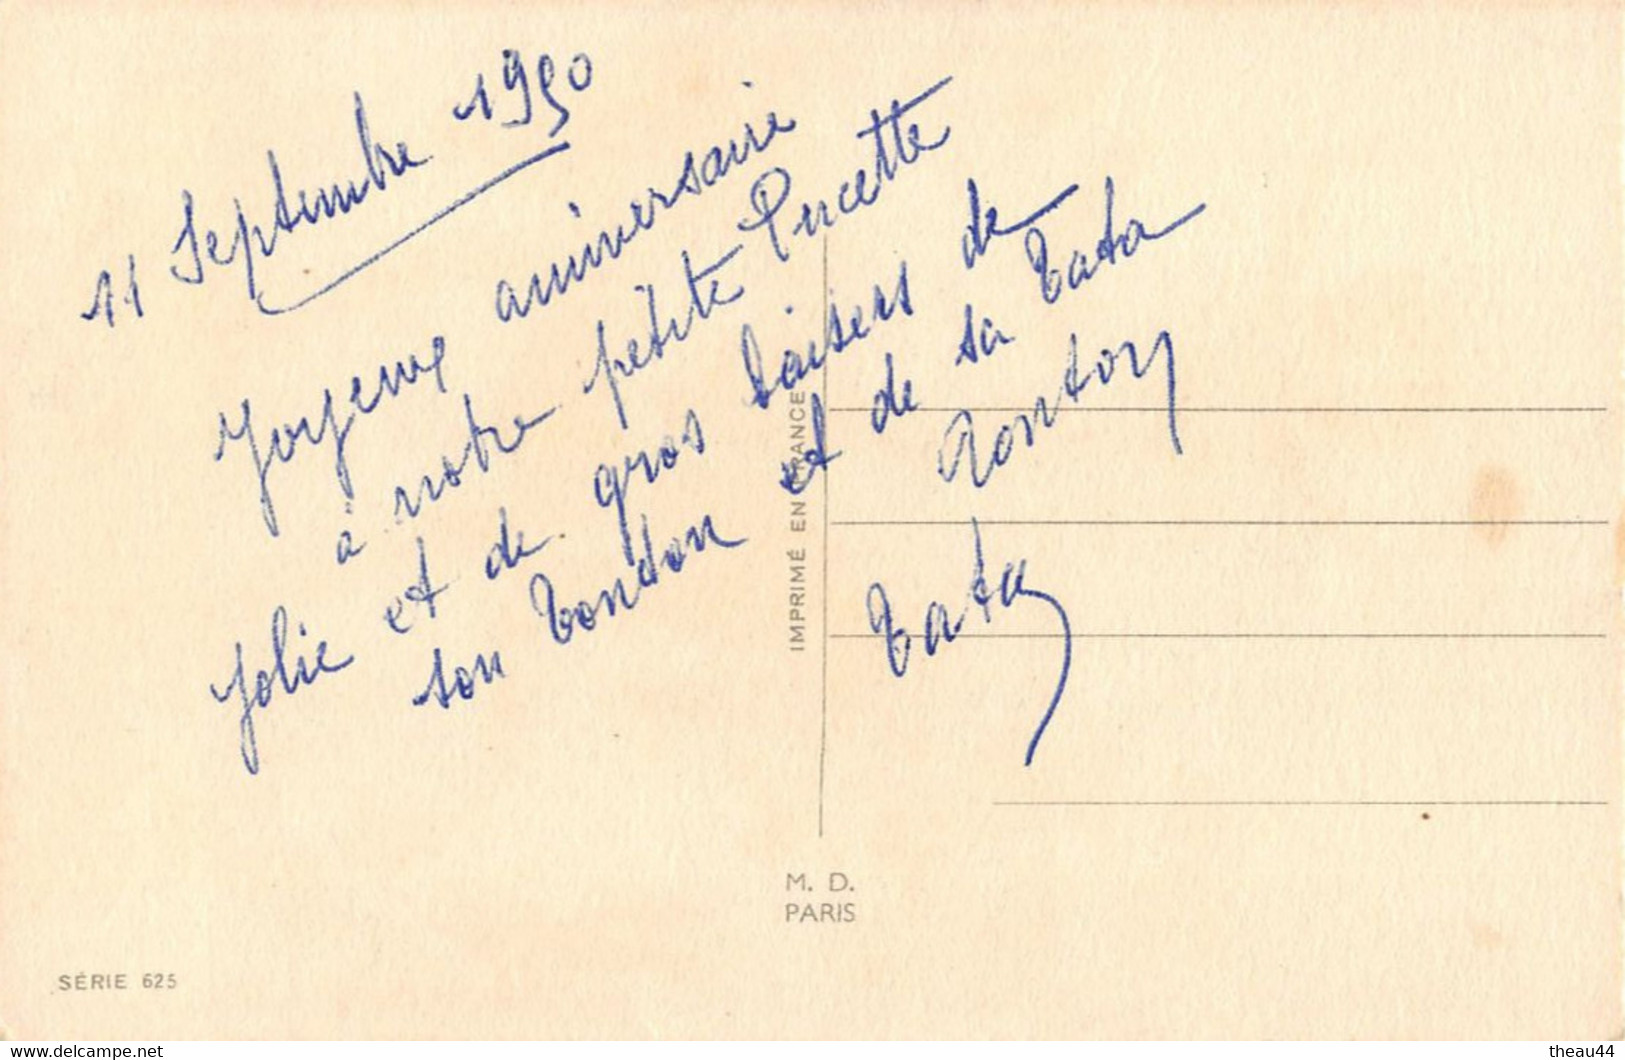 11 Septembre 1950
Joyeux anniversaire
à notre petite Pucette
Jolie et de gros baisers de
son tonton et de sa tata
Tonton
tata
IMPRIMÉ EN FRANCE
M. D.
PARIS
SÉRIE 625
theau44